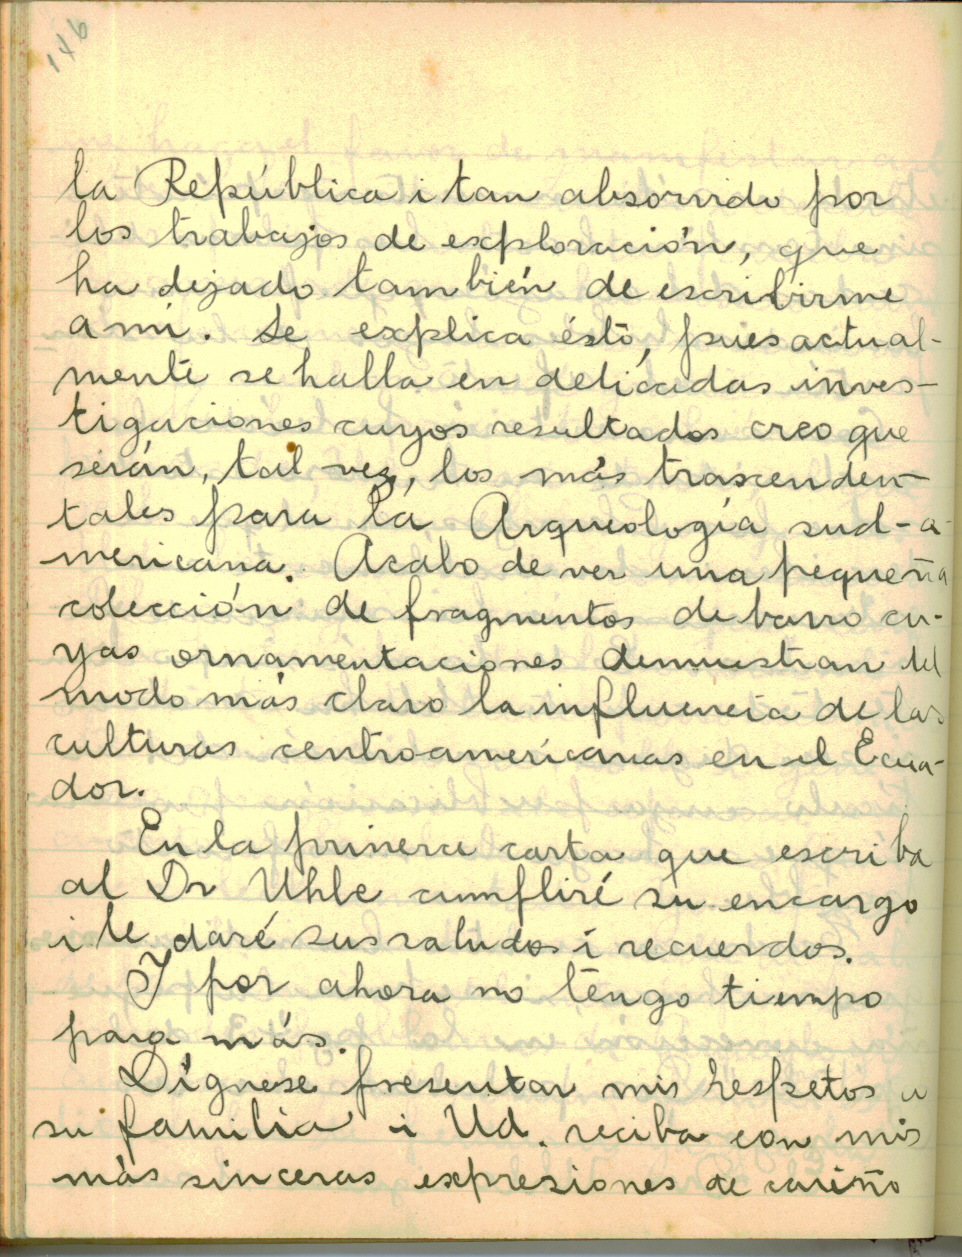 146
la República i tan absorvido por
los trabajos de exploración, que
ha dejado también de escribirme
a mí. Se explica ésto, pues actual-
mente se halla en delicadas inves-
tigaciones cuyos resultados creo que
serán, tal vez, los más trascenden-
tales para la Arqueología sud-a-
mericana. Acabo de ver una pequeña
colección de fragmentos de barro cu-
yas ornamentaciones demuestran del
modo más claro la influencia de las
culturas centroamericanas en el Ecua-
dor.
En la primera carta que escriba
al Dr Uhle cumpliré su encargo
i le daré sus saludos i recuerdos.
Y por ahora no tengo tiempo
para más.
Dígnese presentar mis respetos a
su familia i Ud. reciba con mis
más sinceras expresiones de cariño